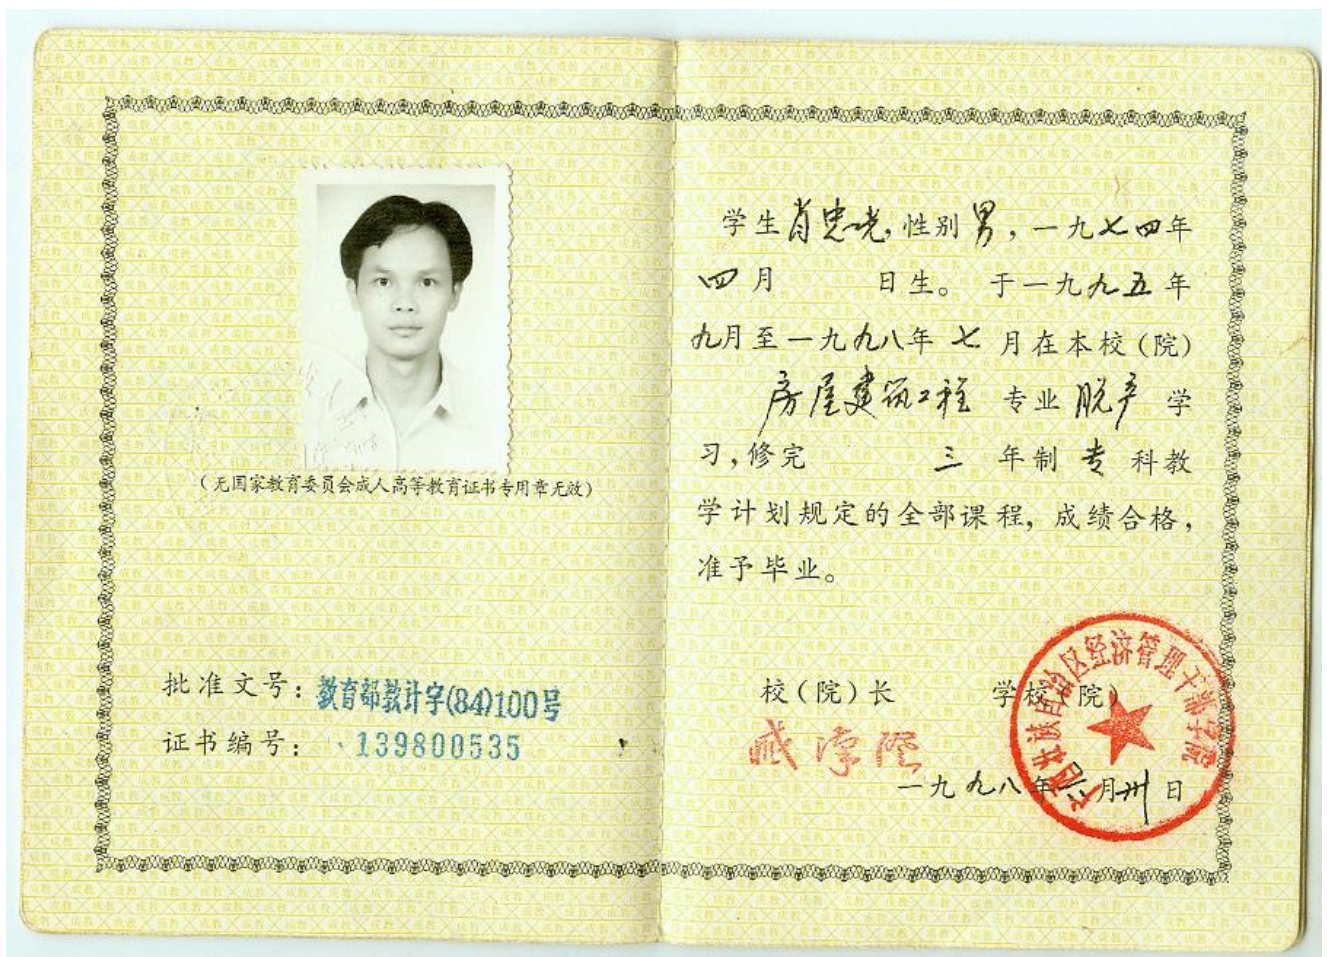 (无国家教育委员会成人高等教育证书专用章无效)
批准文号：教育部教计字(84)100号
证书编号：139800535
学生肖忠光，性别男，一九七四年
四月 日生。于一九九五年
九月至一九九八年七月在本校(院)
房屋建筑工程 专业 脱产 学
习，修完 三 年制 专 科教
学计划规定的全部课程，成绩合格，
准予毕业。
校(院)长 学校(院)
广西壮族自治区经济管理干部学院
一九九八年六月卅日